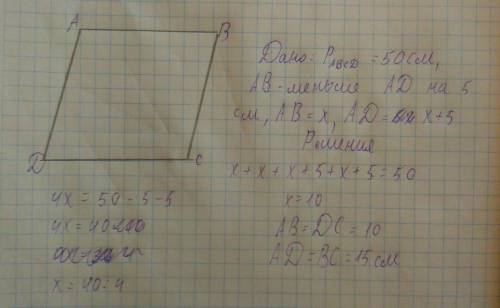 A
B
D
C
Дано: P_ABCD = 50 см,
AB - меньше AD на 5
см, AB = x, AD = x+5
Решения
x + x + x + 5 + x + 5 = 50
x = 10
AB = DC = 10
AD = BC = 15 см
4x = 50 - 5 - 5
4x = 40
x = 40 : 4